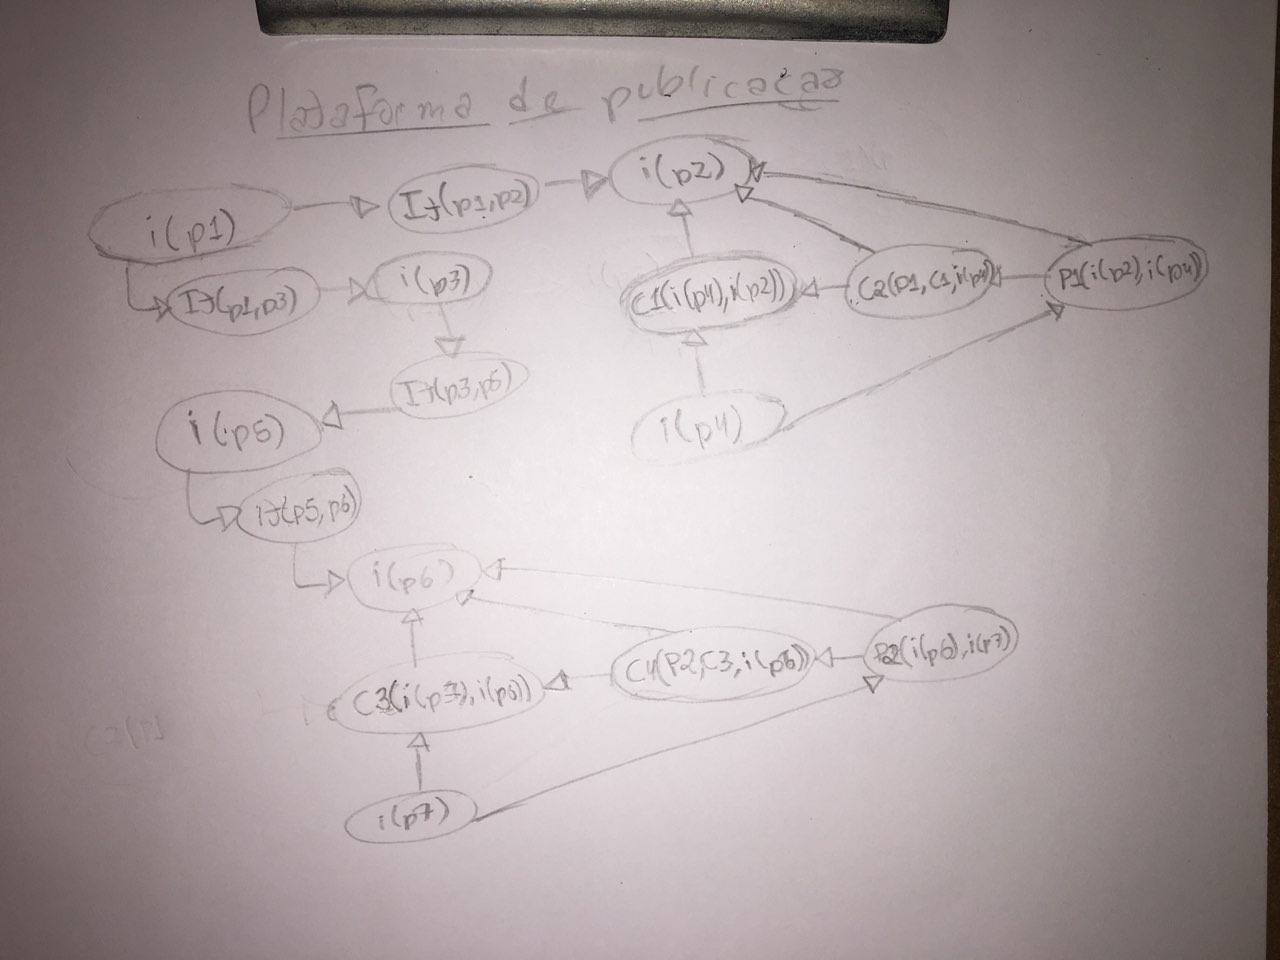 Plataforma de publicação
i(p1)
It(p1,p2)
i(p2)
It(p1,p3)
i(p3)
C1(i(p4),i(p2))
C2(P1,C1,i(p4))
P1(i(p2),i(p4))
It(p3,p5)
i(p5)
i(p4)
It(p5,p6)
i(p6)
C3(i(p7),i(p6))
C4(P2,C3,i(p6))
P2(i(p6),i(p7))
i(p7)